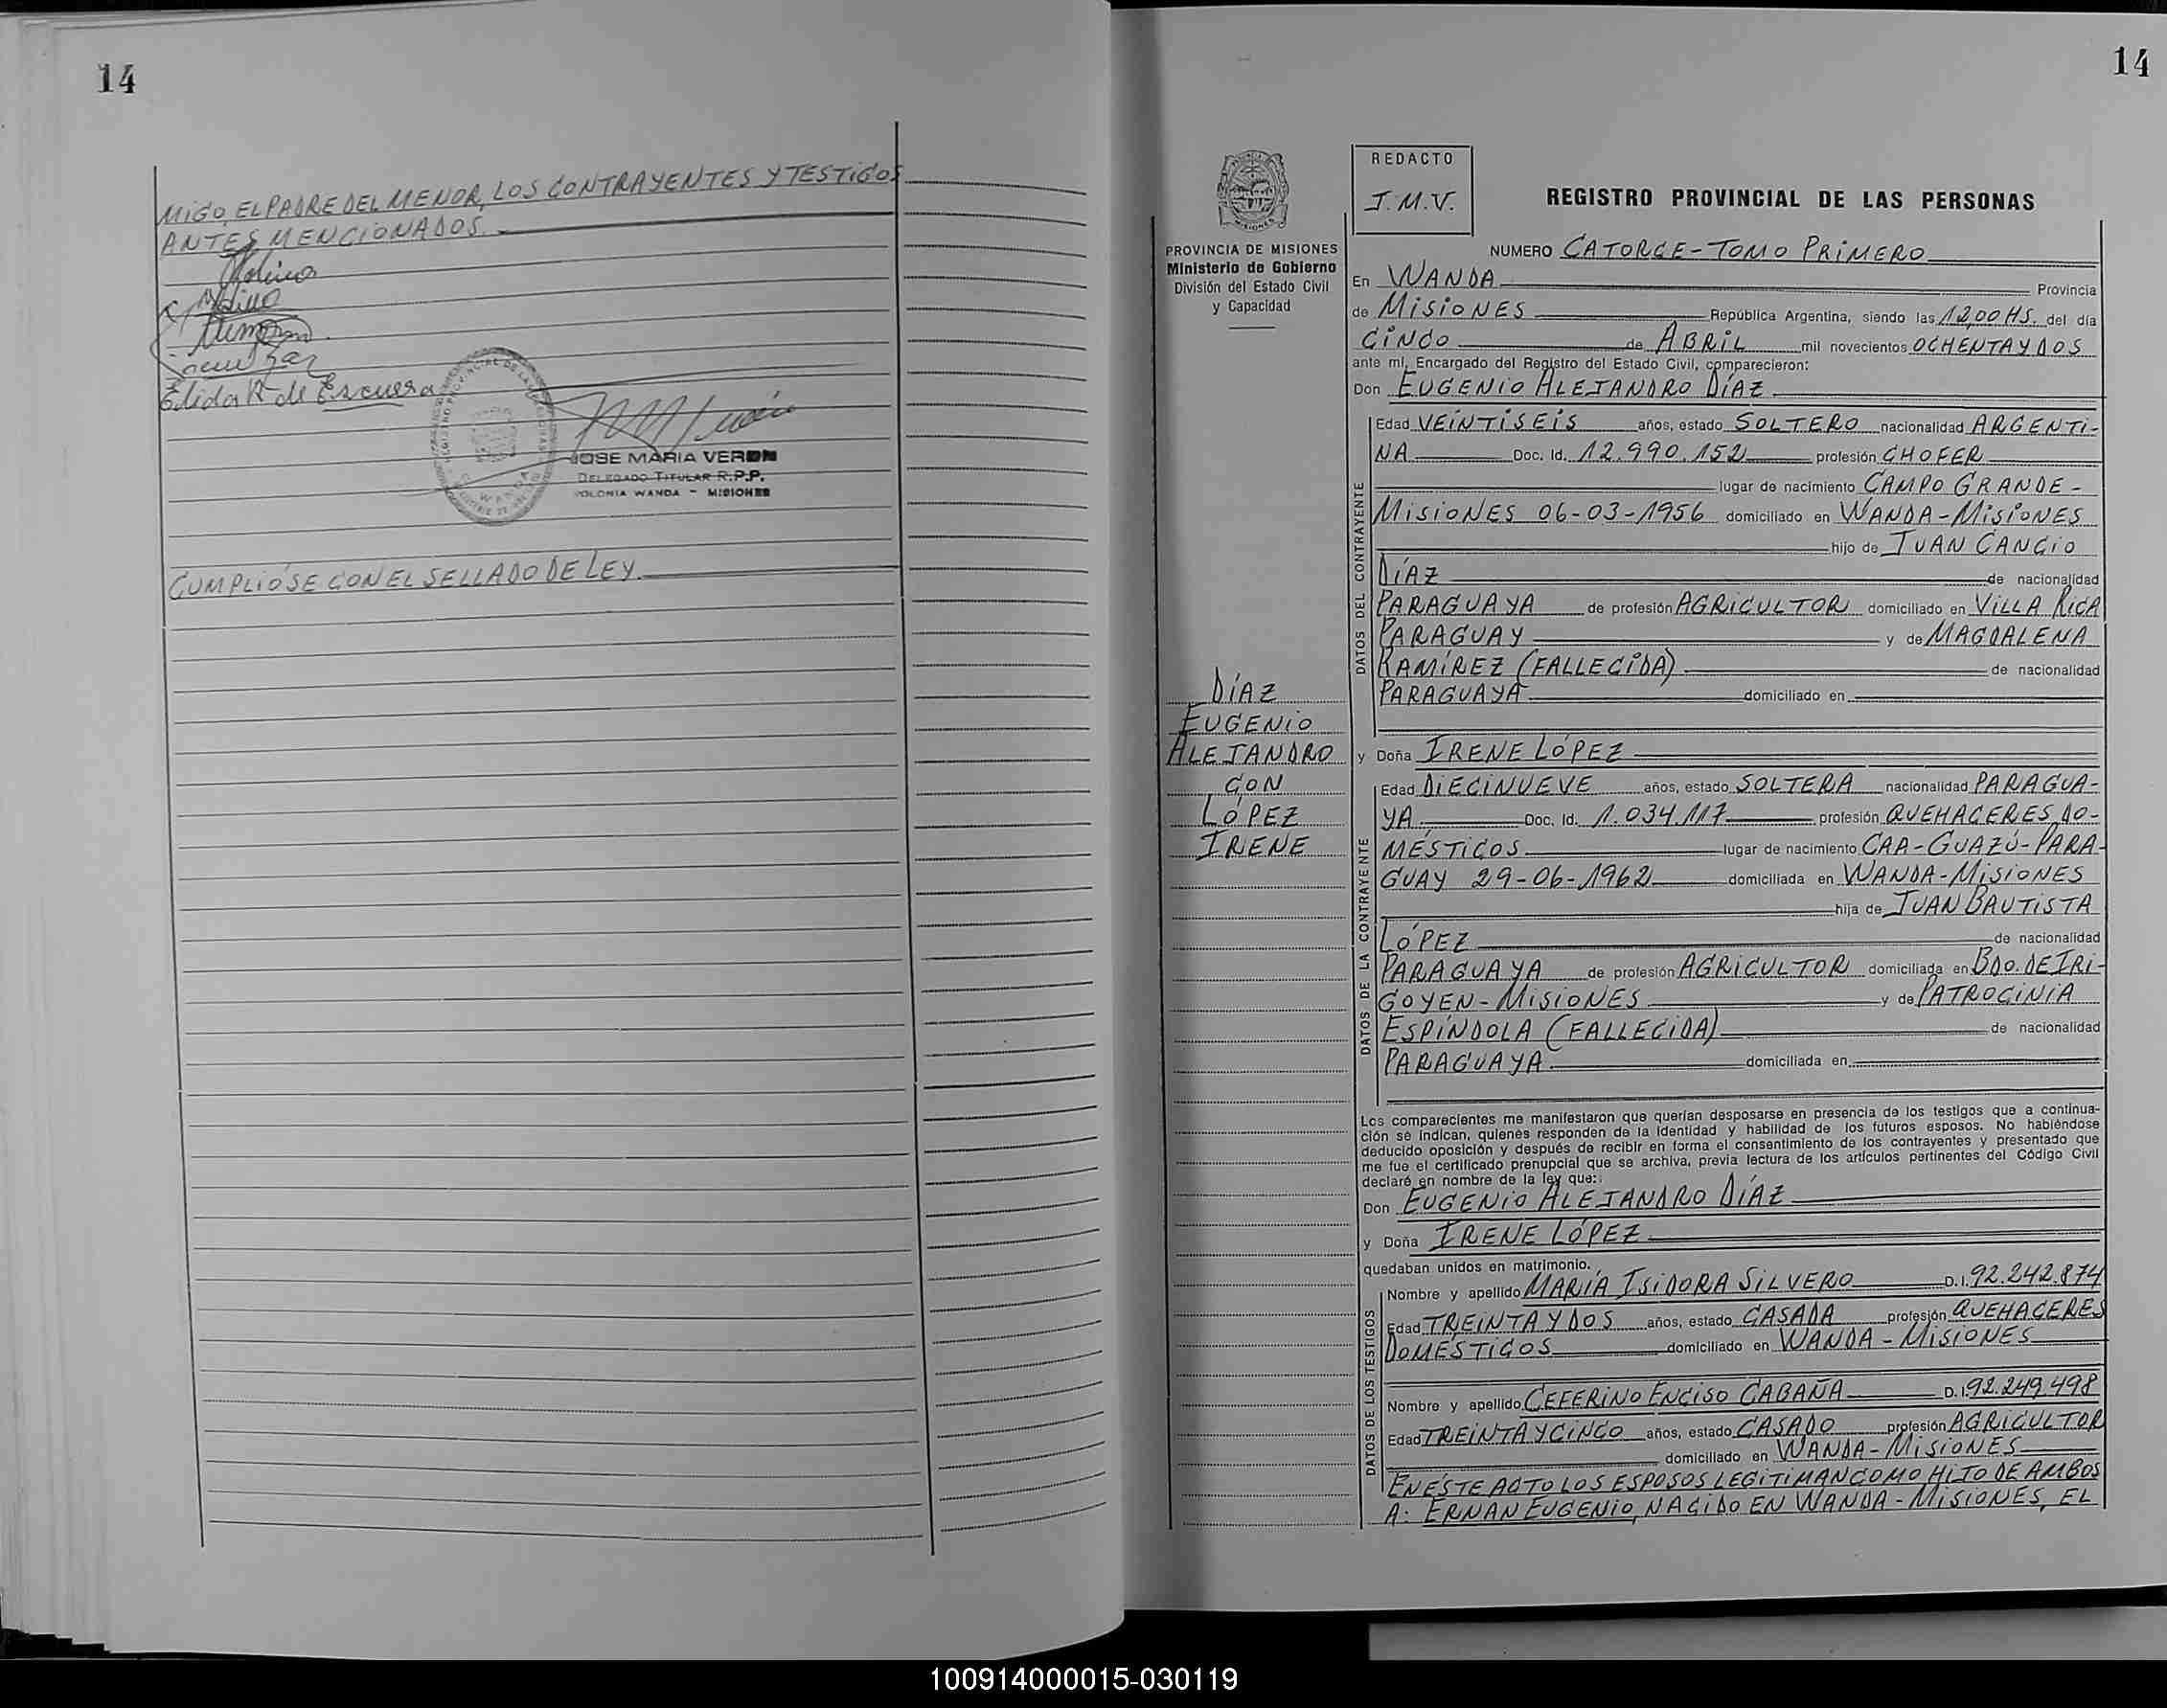 14
MIGO, EL PADRE DEL MENOR, LOS CONTRAYENTES Y TESTIGOS
ANTES MENCIONADOS.
Elida R de Escuera
JOSE MARIA VERON
DELEGADO TITULAR R.P.P.
COLONIA WANDA - MISIONES
CUMPLIÓSE CON EL SELLADO DE LEY.
14
PROVINCIA DE MISIONES
Ministerio de Gobierno
División del Estado Civil
y Capacidad
REDACTO
J.M.V.
REGISTRO PROVINCIAL DE LAS PERSONAS
NUMERO CATORCE - TOMO PRIMERO
En WANDA Provincia
de MISIONES República Argentina, siendo las 12,00 HS. del día
CINCO de ABRIL mil novecientos OCHENTA Y DOS
ante mí, Encargado del Registro del Estado Civil, comparecieron:
Don EUGENIO ALEJANDRO DÍAZ
DATOS DEL CONTRAYENTE
Edad VEINTISEIS años, estado SOLTERO nacionalidad ARGENTI-
NA Doc. Id. 12.990.152 profesión CHOFER
lugar de nacimiento CAMPO GRANDE -
MISIONES 06-03-1956 domiciliado en WANDA - MISIONES
hijo de JUAN CANCIO
DÍAZ de nacionalidad
PARAGUAYA de profesión AGRICULTOR domiciliado en VILLA RICA
PARAGUAY y de MAGDALENA
RAMÍREZ (FALLECIDA) de nacionalidad
PARAGUAYA domiciliado en
DÍAZ
EUGENIO
ALEJANDRO
CON
LÓPEZ
IRENE
y Doña IRENE LÓPEZ
DATOS DE LA CONTRAYENTE
Edad DIECINUEVE años, estado SOLTERA nacionalidad PARAGUA-
YA Doc. Id. 1.034.117 profesión QUEHACERES DO-
MÉSTICOS lugar de nacimiento CAA-GUAZÚ-PARA-
GUAY 29-06-1962 domiciliada en WANDA-MISIONES
hija de JUAN BAUTISTA
LÓPEZ de nacionalidad
PARAGUAYA de profesión AGRICULTOR domiciliada en BDO. DE IRI-
GOYEN - MISIONES y de PATROCINIA
ESPÍNDOLA (FALLECIDA) de nacionalidad
PARAGUAYA domiciliada en
Los comparecientes me manifestaron que querían desposarse en presencia de los testigos que a continua-
ción se indican, quienes responden de la identidad y habilidad de los futuros esposos. No habiéndose
deducido oposición y después de recibir en forma el consentimiento de los contrayentes y presentado que
me fue el certificado prenupcial que se archiva, previa lectura de los artículos pertinentes del Código Civil
declaré en nombre de la ley que:
Don EUGENIO ALEJANDRO DÍAZ
y Doña IRENE LÓPEZ
quedaban unidos en matrimonio.
DATOS DE LOS TESTIGOS
Nombre y apellido MARÍA ISIDORA SILVERO D.I. 92.242.874
Edad TREINTA Y DOS años, estado CASADA profesión QUEHACERES
DOMÉSTICOS domiciliado en WANDA - MISIONES
Nombre y apellido CEFERINO ENCISO CABAÑA D.I. 92.249.498
Edad TREINTA Y CINCO años, estado CASADO profesión AGRICULTOR
domiciliado en WANDA - MISIONES
EN ÉSTE ACTO LOS ESPOSOS LEGITIMAN COMO HIJO DE AMBOS
A: ERNAN EUGENIO, NACIDO EN WANDA - MISIONES, EL
100914000015-030119